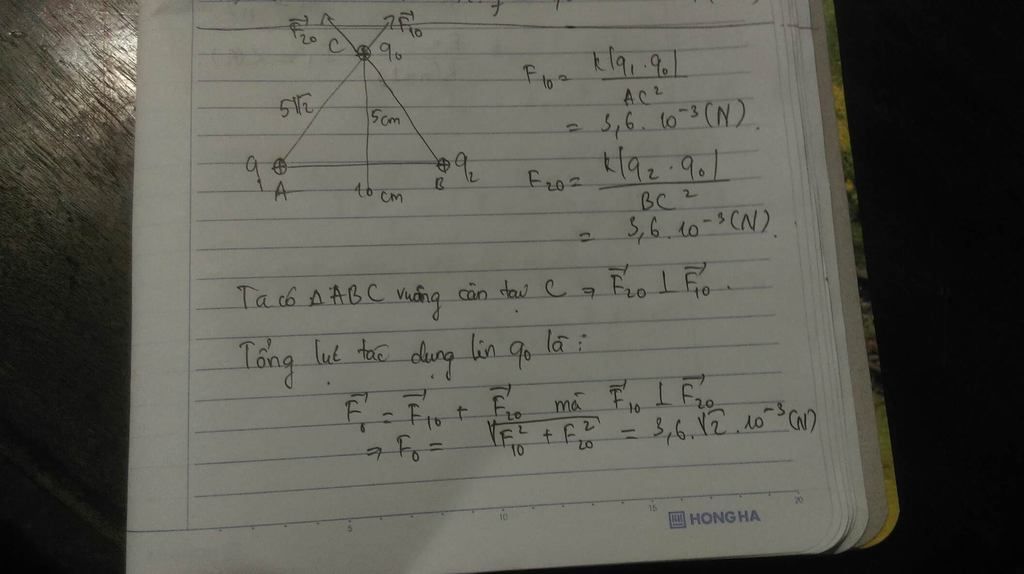 F⃗20 C q0 F⃗10
5√2 5cm
q1 A 10 cm B q2
F10 = k|q1 . q0| / AC²
= 3,6 . 10⁻³ (N).
F20 = k|q2 . q0| / BC²
= 3,6 . 10⁻³ (N).
Ta có ΔABC vuông cân tại C ⇒ F⃗20 ⊥ F⃗10 .
Tổng lực tác dụng lên q0 là :
F⃗0 = F⃗10 + F⃗20 mà F⃗10 ⊥ F⃗20
⇒ F0 = √(F10² + F20²) = 3,6.√2 . 10⁻³ (N)
5 10 15 20
HONG HA